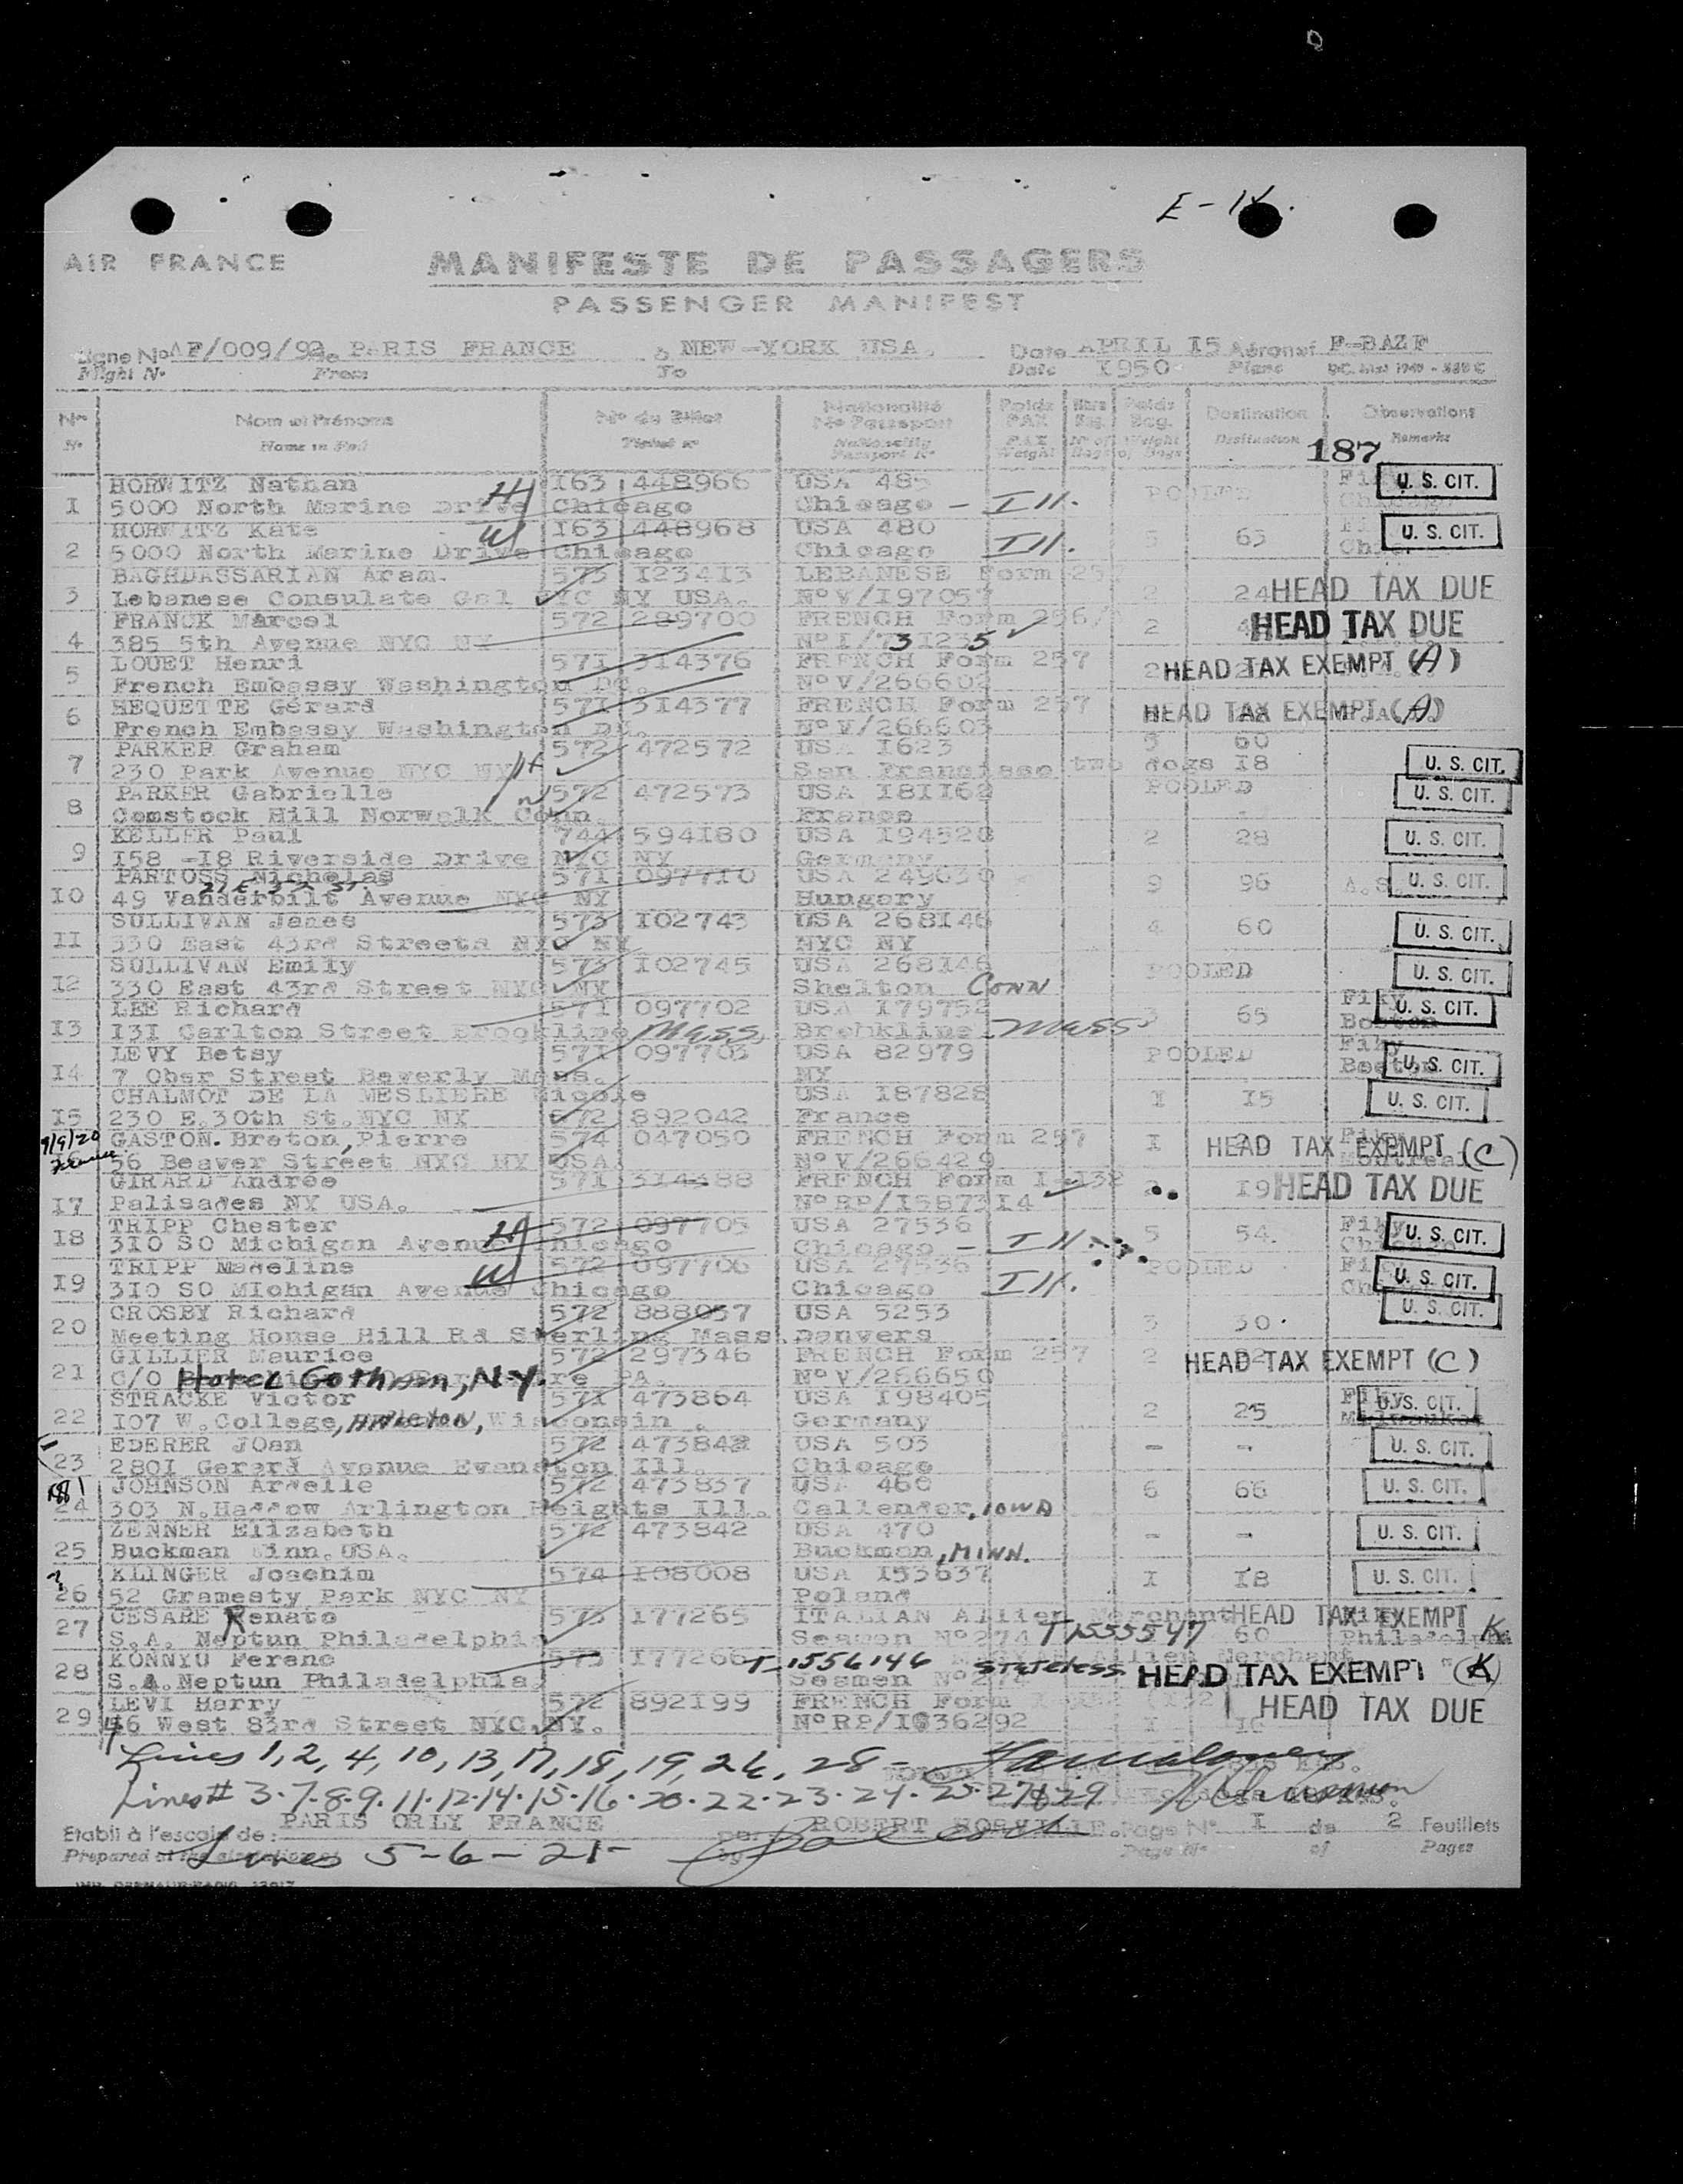 E-14.
AIR FRANCE MANIFESTE DE PASSAGERS
PASSENGER MANIFEST
Ligne No AF/009/92 de PARIS FRANCE à NEW-YORK USA. Date APRIL I5 Aéronef F-BAZF
Flight No From To Date I950 Plane
Nos Nom et Prénoms No du Billet Nationalité No Passeport Poids PAX Nbre Bag. Poids Bag. Destination Observations
No Name in Full Ticket No Nationality Passport No PAX Weight No of Bags Weight of Bags Destination 187 Remarks
HORWITZ Nathan I63 448966 USA 485 U. S. CIT.
I 5000 North Marine Drive Chicago Chicago - Ill. POOLED
HORWITZ Kate W I63 448968 USA 480 U. S. CIT.
2 5000 North Marine Drive Chicago Chicago Ill. 5 65
BAGHDASSARIAN Aram. 573 I234I3 LEBANESE Form 257
3 Lebanese Consulate Gal NYC NY USA. No V/I97057 2 24 HEAD TAX DUE
FRANCK Marcel 572 289700 FRENCH Form 256/ 2 HEAD TAX DUE
4 385 5th Avenue NYC NY No I/731235
LOUET Henri 57I 3I4376 FRENCH Form 257 2 HEAD TAX EXEMPT (A)
5 French Embassy Washington DC. No V/266602
HEQUETTE Gérard 57I 3I4377 FRENCH Form 257 HEAD TAX EXEMPT (A)
6 French Embassy Washington DC. No V/266603
PARKER Graham 572 472572 USA I623 3 60
7 230 Park Avenue NYC NY San Francisco two dogs I8 U. S. CIT.
PARKER Gabrielle 572 472573 USA I8II62 POOLED U. S. CIT.
8 Comstock Hill Norwalk Conn. France
KELLER Paul 744 594I80 USA I94528 2 28 U. S. CIT.
9 I58 -I8 Riverside Drive NYC NY Germany
PARTOSS Nicholas 57I 0977I0 USA 249630 9 96 U. S. CIT.
I0 49 Vanderbilt Avenue NYC NY Hungary
SULLIVAN James 573 I02743 USA 268I46 4 60 U. S. CIT.
II 330 East 43rd Streets NYC NY NYC NY
SULLIVAN Emily 573 I02745 USA 268I46 POOLED U. S. CIT.
I2 330 East 43rd Street NYC NY Shelton CONN
LEE Richard 57I 097702 USA I79752 3 65 U. S. CIT.
I3 I3I Carlton Street Brookline Mass. Brohkline Mass Boston
LEVY Betsy 57I 097703 USA 82979 POOLED U. S. CIT.
I4 7 Ober Street Beverly Mass. NY Boston
CHALMOT DE LA MESLIERE Nicole USA I87828 I I5 U. S. CIT.
I5 230 E.30th St.NYC NY 572 892042 France
9/9/20 GASTON. Breton, Pierre 574 047050 FRENCH Form 257 I HEAD TAX EXEMPT (C)
France 56 Beaver Street NYC NY USA. No V/266429 Montreal
GIRARD Andrée 57I 3I4388 FRENCH Form I-I32 2 I9 HEAD TAX DUE
I7 Palisades NY USA. No RP/I5873I4
TRIPP Chester 572 097705 USA 27536 5 54. U. S. CIT.
I8 3I0 SO Michigan Avenue Chicago Chicago - Ill.
TRIPP Madeline W 572 097706 USA 27536 POOLED U. S. CIT.
I9 3I0 SO MIchigan Avenue Chicago Chicago Ill.
CROSBY Richard 572 888057 USA 5253 3 30. U. S. CIT.
20 Meeting House Hill Rd Sterling Mass. Danvers
GILLIER Maurice 572 297346 FRENCH Form 257 2 HEAD TAX EXEMPT (C)
21 C/O Hotel Gotham, N.Y. PA. No V/266650
STRACKE Victor 57I 473864 USA I98405 2 25 U. S. CIT.
22 I07 W.College, Appleton, Wisconsin. Germany Milwaukee
EDERER JOan 572 473843 USA 503 - - U. S. CIT.
23 280I Gerard Avenue Evanston Ill. Chicago
JOHNSON Ardelle 572 473837 USA 460 6 66 U. S. CIT.
24 303 N.Haddow Arlington Heights Ill. Callender, IOWA
ZENNER Elizabeth 572 473842 USA 470 - - U. S. CIT.
25 Buckman Minn.USA. Buckman, MINN.
KLINGER Joachim 574 I08008 USA I53637 I I8 U. S. CIT.
26 52 Gramesty Park NYC NY Poland
CESARE Renato 573 I77265 ITALIAN Allien Merchant HEAD TAX EXEMPT K
27 S.A. Neptun Philadelphia Seamen No 274 T1555547 60 Philadelphia
KONNYU Ferenc 573 I77266 T-1556146 Stateless Allien Merchant
28 S.A.Neptun Philadelphia Seamen No 274 HEAD TAX EXEMPT (K)
LEVI Harry 572 892I99 FRENCH Form HEAD TAX DUE
29 46 West 83rd Street NYC.NY. No RP/I036292 I I6
Lines 1, 2, 4, 10, 13, 17, 18, 19, 26, 28 -
Lines # 3.7.8.9.11.12.14.15.16.20.22.23.24.25.27&29
Etabli à l'escale de: PARIS ORLY FRANCE par ROBERT HORVILLE. Page No I de 2 Feuillets
Prepared at the station of by Page No of Pages
Lines 5-6-21-